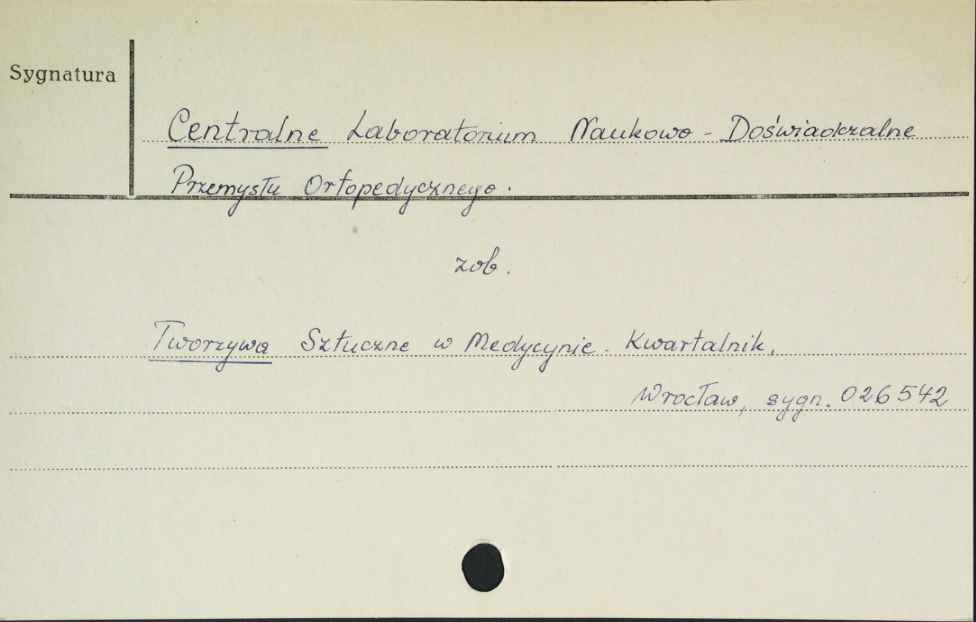 Sygnatura
Centralne Laboratorium Naukowo - Doświadczalne
Przemysłu Ortopedycznego.
zob.
Tworzywa Sztuczne w Medycynie. Kwartalnik.
Wrocław, sygn. 026542